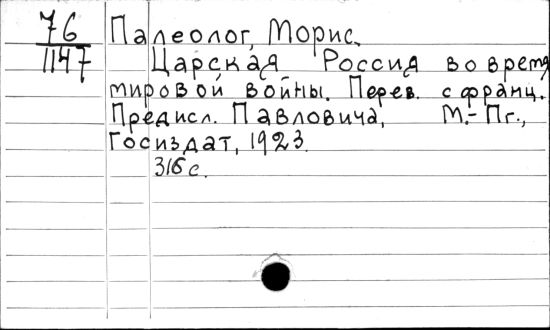 76 Палеолог, Морис.
1147 Царская Россия во время
мировой войны. Перев. с франц.
Предисл. Павловича, М.-Пг.,
Госиздат, 1923.
316 с.